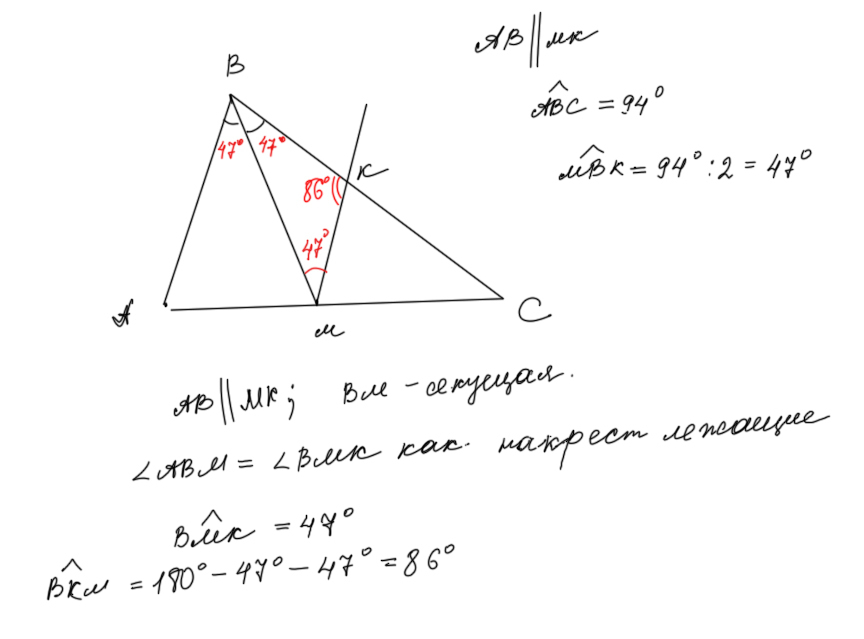 AB || MK
ABC = 94°
B
47° 47°
MBK = 94° : 2 = 47°
K
86°
47°
A
M
C
AB || MK; BM - секущая.
∠ABM = ∠BMK как накрест лежащие
BMK = 47°
BKM = 180° - 47° - 47° = 86°